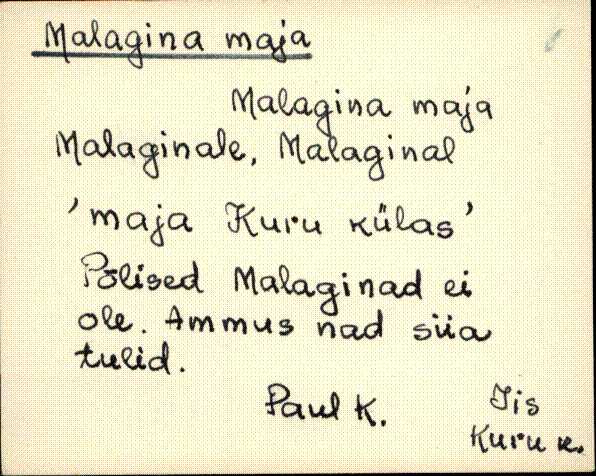 Malagina maja
Malagina maja
Malaginale, Malaginal
'maja Kuru külas'
Põlised Malaginad ei
ole. Ammus nad siia
tulid.
Paul K.
Iis
Kuru k.